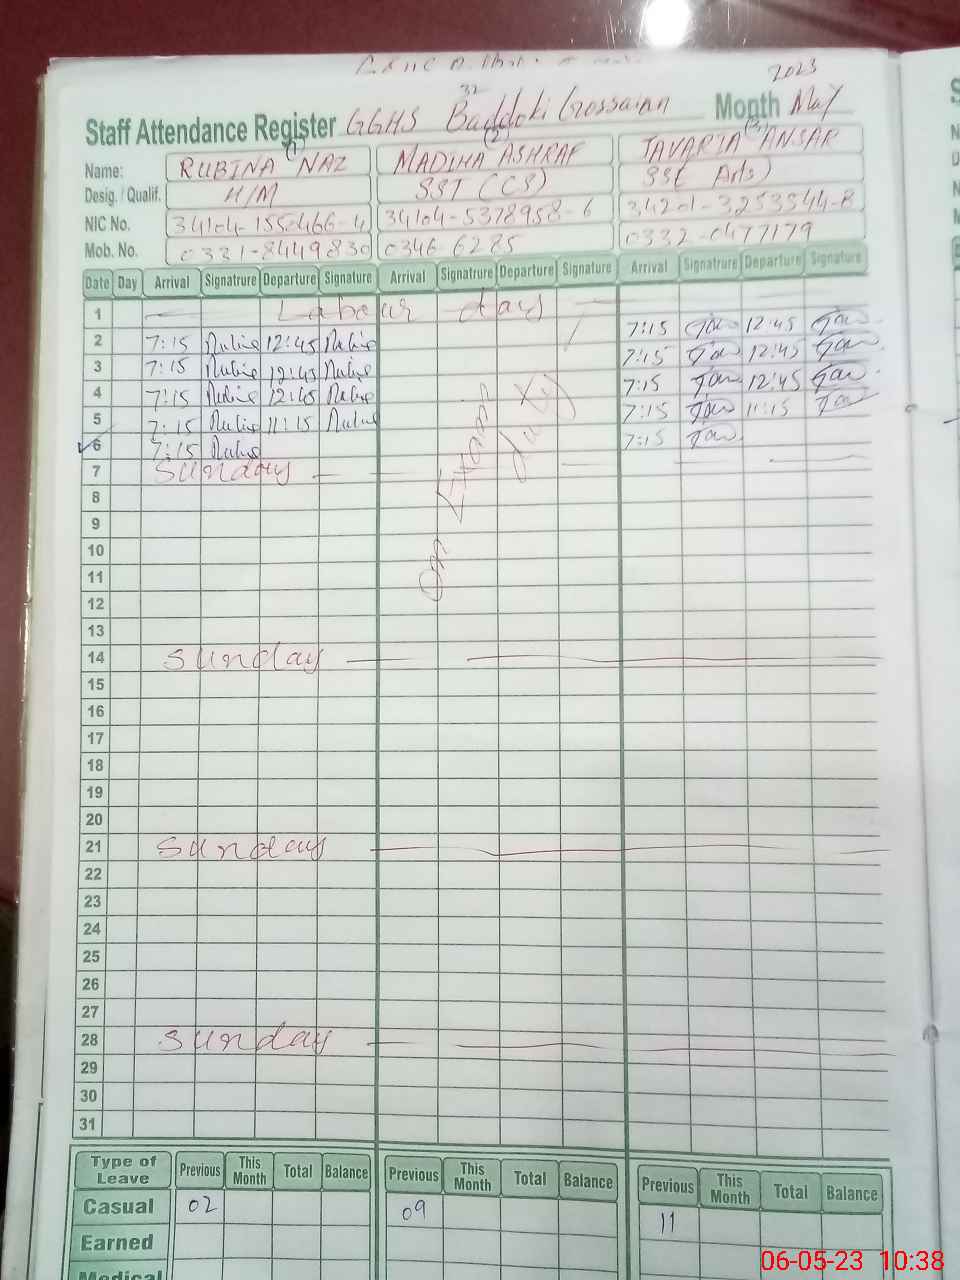 2023
Staff Attendance Register GGHS Baddoki Gossainn Month May
(1) (2) (3)
Name: RUBINA NAZ MADIHA ASHRAF JAVARIA ANSAR
Desig. / Qualif. H/M SST (CS) SSE Arts)
NIC No. 34104-1550466-4 34104-5378958-6 34201-3253544-8
Mob. No. 0331-8449830 0346 6285 0332-0477179
Date Day Arrival Signatrure Departure Signature Arrival Signatrure Departure Signature Arrival Signatrure Departure Signature
1 Labour day
2 7:15 Rubina 12:45 Rubina 7:15 12:45
3 7:15 Rubina 12:45 Rubina 7:15 12:45
4 7:15 Rubina 12:45 Rubina 7:15 12:45
5 7:15 Rubina 11:15 Rubina 7:15 11:15
6 7:15 Rubina 7:15
On Exams duty
7 Sunday
8
9
10
11
12
13
14 Sunday
15
16
17
18
19
20
21 Sunday
22
23
24
25
26
27
28 Sunday
29
30
31
Type of Leave Previous This Month Total Balance Previous This Month Total Balance Previous This Month Total Balance
Casual 02 09 11
Earned
Medical
06-05-23 10:38